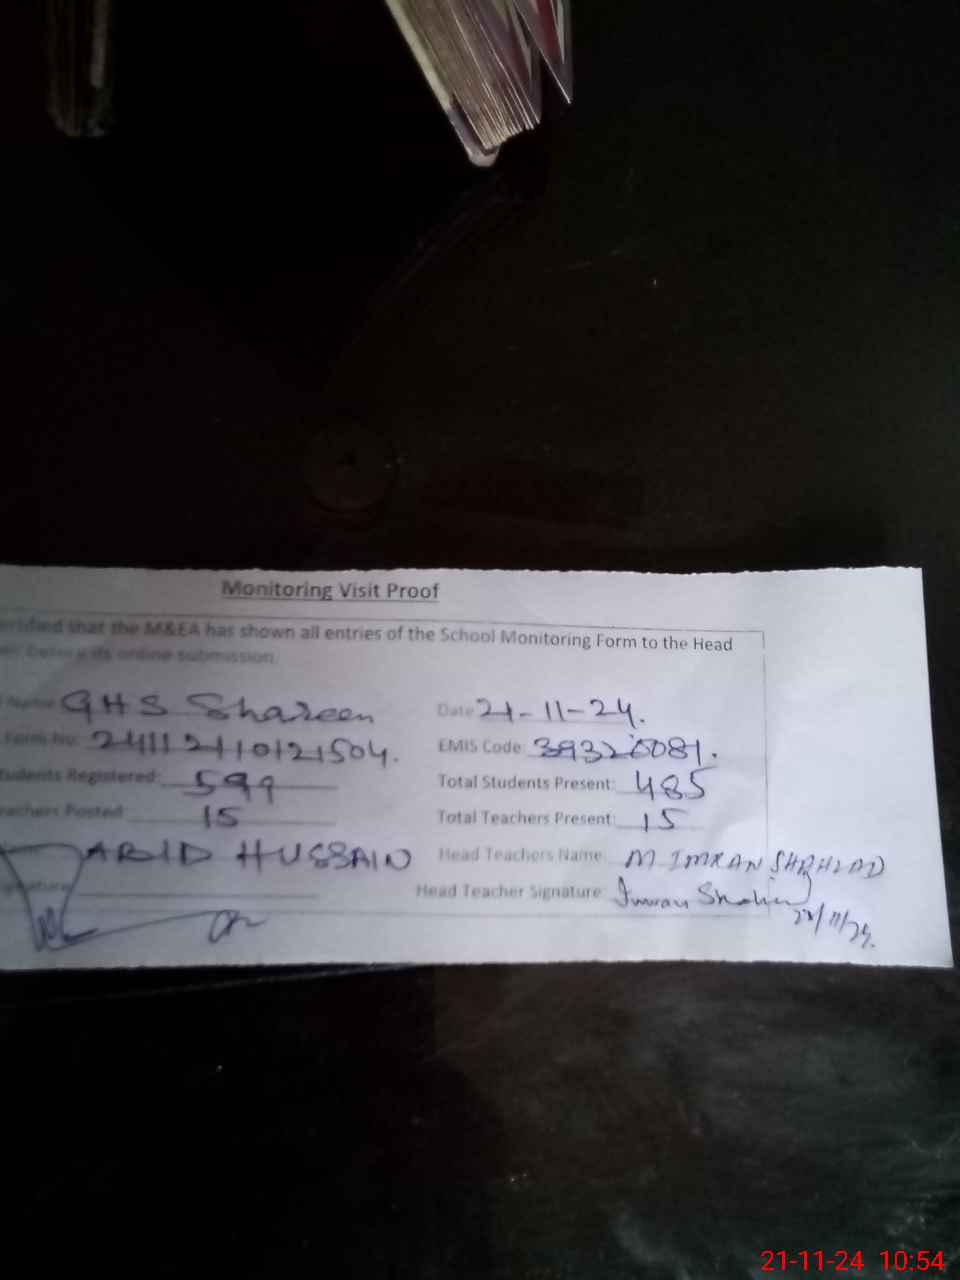 Monitoring Visit Proof
that the M&EA has shown all entries of the School Monitoring Form to the Head
its online submission.
Name GHS Shareen Date 21-11-24.
Form No: 24112110121504. EMIS Code: 39320081.
Students Registered: 599 Total Students Present: 485
Teachers Posted 15 Total Teachers Present: 15
ABID HUSSAIN Head Teachers Name M IMRAN SHAHZAD
Signature Head Teacher Signature: Imran
21-11-24 10:54